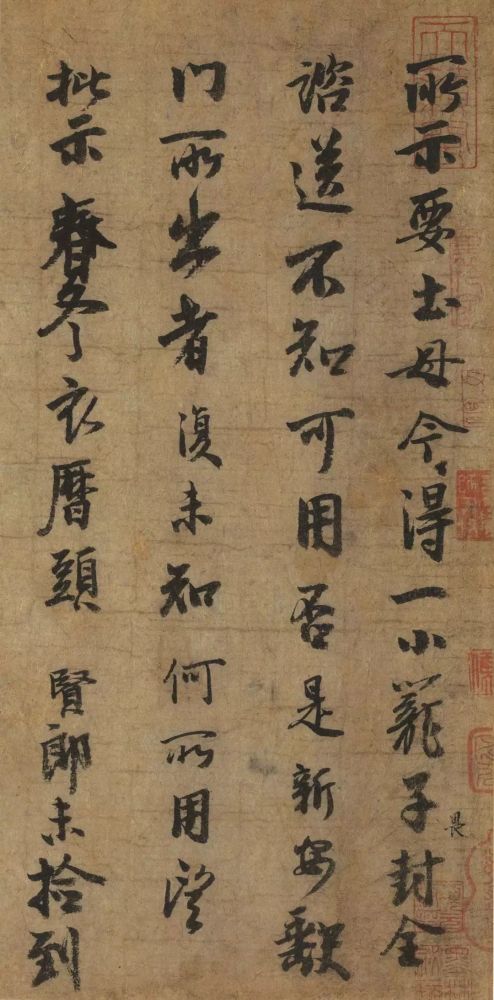 所示要土母今得一小籠子封全
諮送不知可用否是新安缺
門所出者復未知何所用望
批示春冬衣曆頭 賢郎未拾到